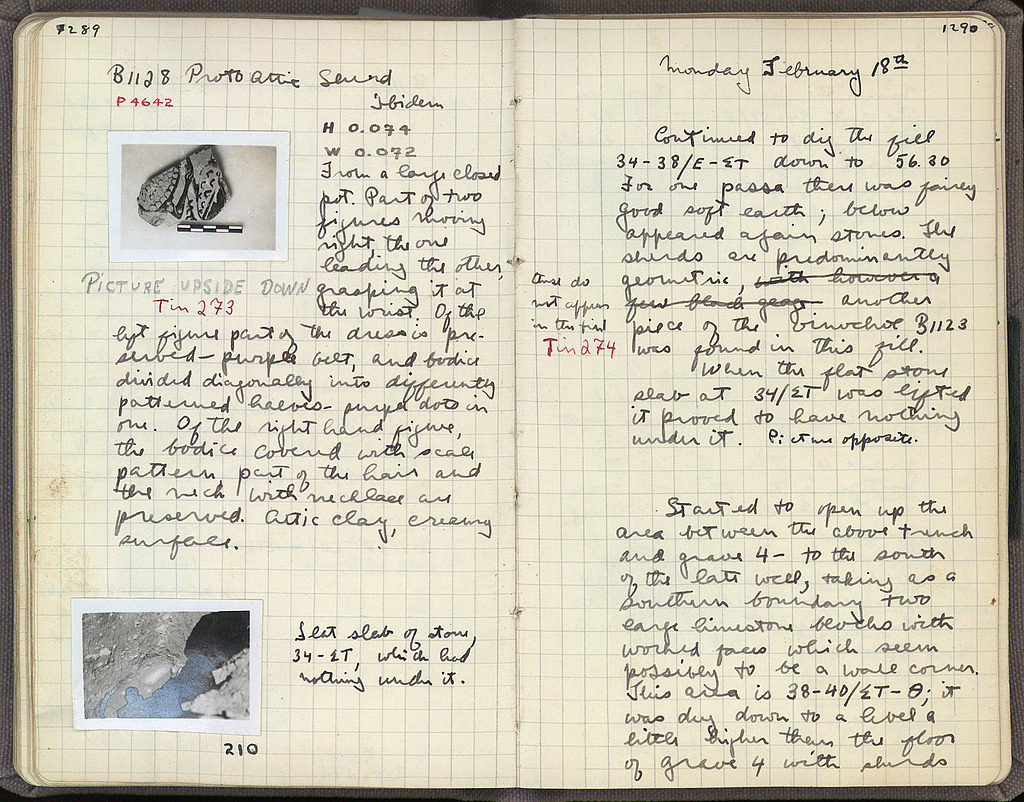 1289
B1128 Proto Attic Sherd
P 4642
Ibidem
H 0.074
W 0.072
From a large closed
pot. Part of two
figures moving
right, the one
leading the other,
grasping it at
the wrist. Of the
PICTURE UPSIDE DOWN
Tin 273
left figure part of the dress is pre-
served – purple belt, and bodice
divided diagonally into differently
patterned halves – purple dots in
one. Of the right hand figure,
the bodice covered with scale
pattern, part of the hair and
the neck with necklace are
preserved. Attic clay, creamy
surface.
Flat slab of stone,
34-ΣΤ, which had
nothing under it.
210
1290
Monday February 18th
Continued to dig the fill
34-38/E-ΣΤ down to 56.30
For one passa there was fairly
good soft earth; below
appeared again stones. The
sherds are predominantly
geometric, with however a
few black glaze another
piece of the oinochoe B1123
was found in this fill.
these do
not appear
in the tin
Tin 274
When the flat stone
slab at 34/ΣΤ was lifted
it proved to have nothing
under it. Picture opposite.
Started to open up the
area between the above trench
and grave 4 – to the south
of the late well, taking as a
southern boundary two
large limestone blocks with
worked faces which seem
possibly to be a wall corner.
This area is 38-40/ΣΤ-Θ; it
was dug down to a level a
little higher than the floor
of grave 4 with sherds